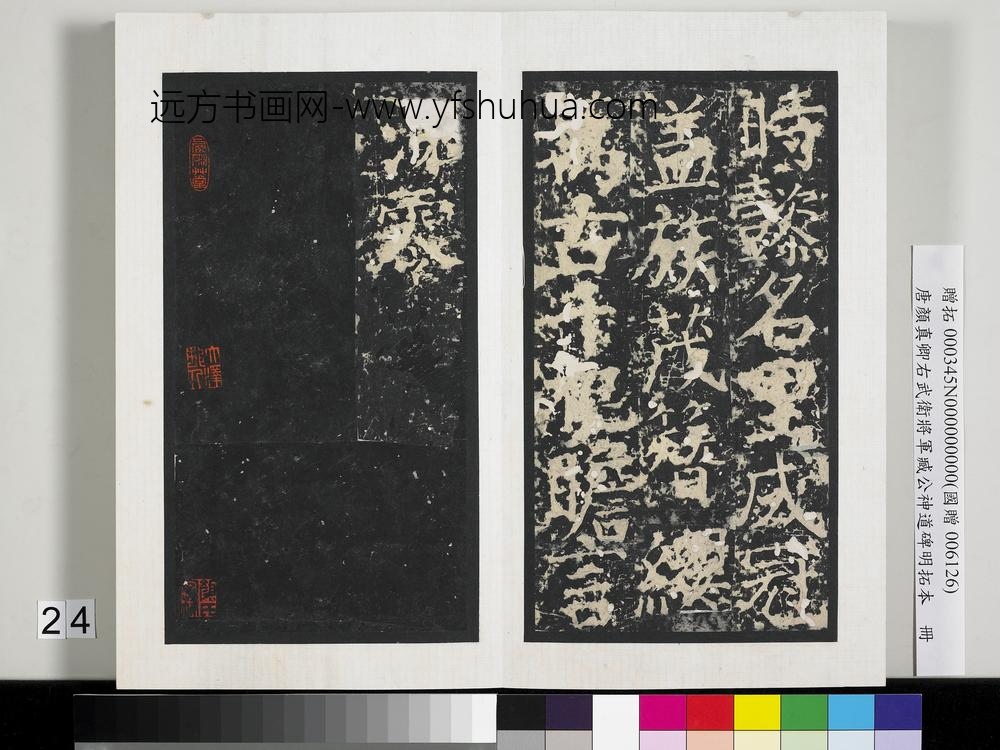 远方书画网-www.yfshuhua.com
時懿名里成冠
蓋族茂簪纓
萬古千瞻言
涕零
贈拓 000345N000000000(國贈 006126)
唐顏真卿右武衛將軍臧公神道碑明拓本 冊
24